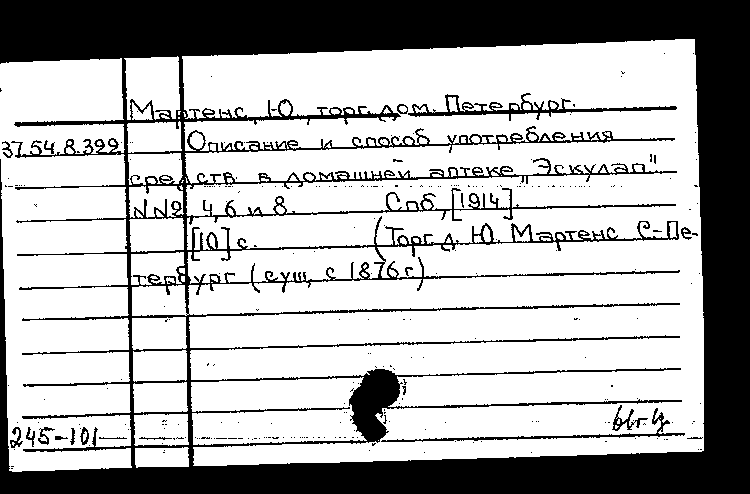 Мартенс, Ю., торг. дом. Петербург.
37.54.8.399 Описание и способ употребления
средств в домашней аптеке „Эскулап"
NN2, 4, 6 и 8. Спб, [1914].
[10] с. (Торг. д. Ю. Мартенс С-Пе-
тербург (сущ. с 1876 г)
245-101